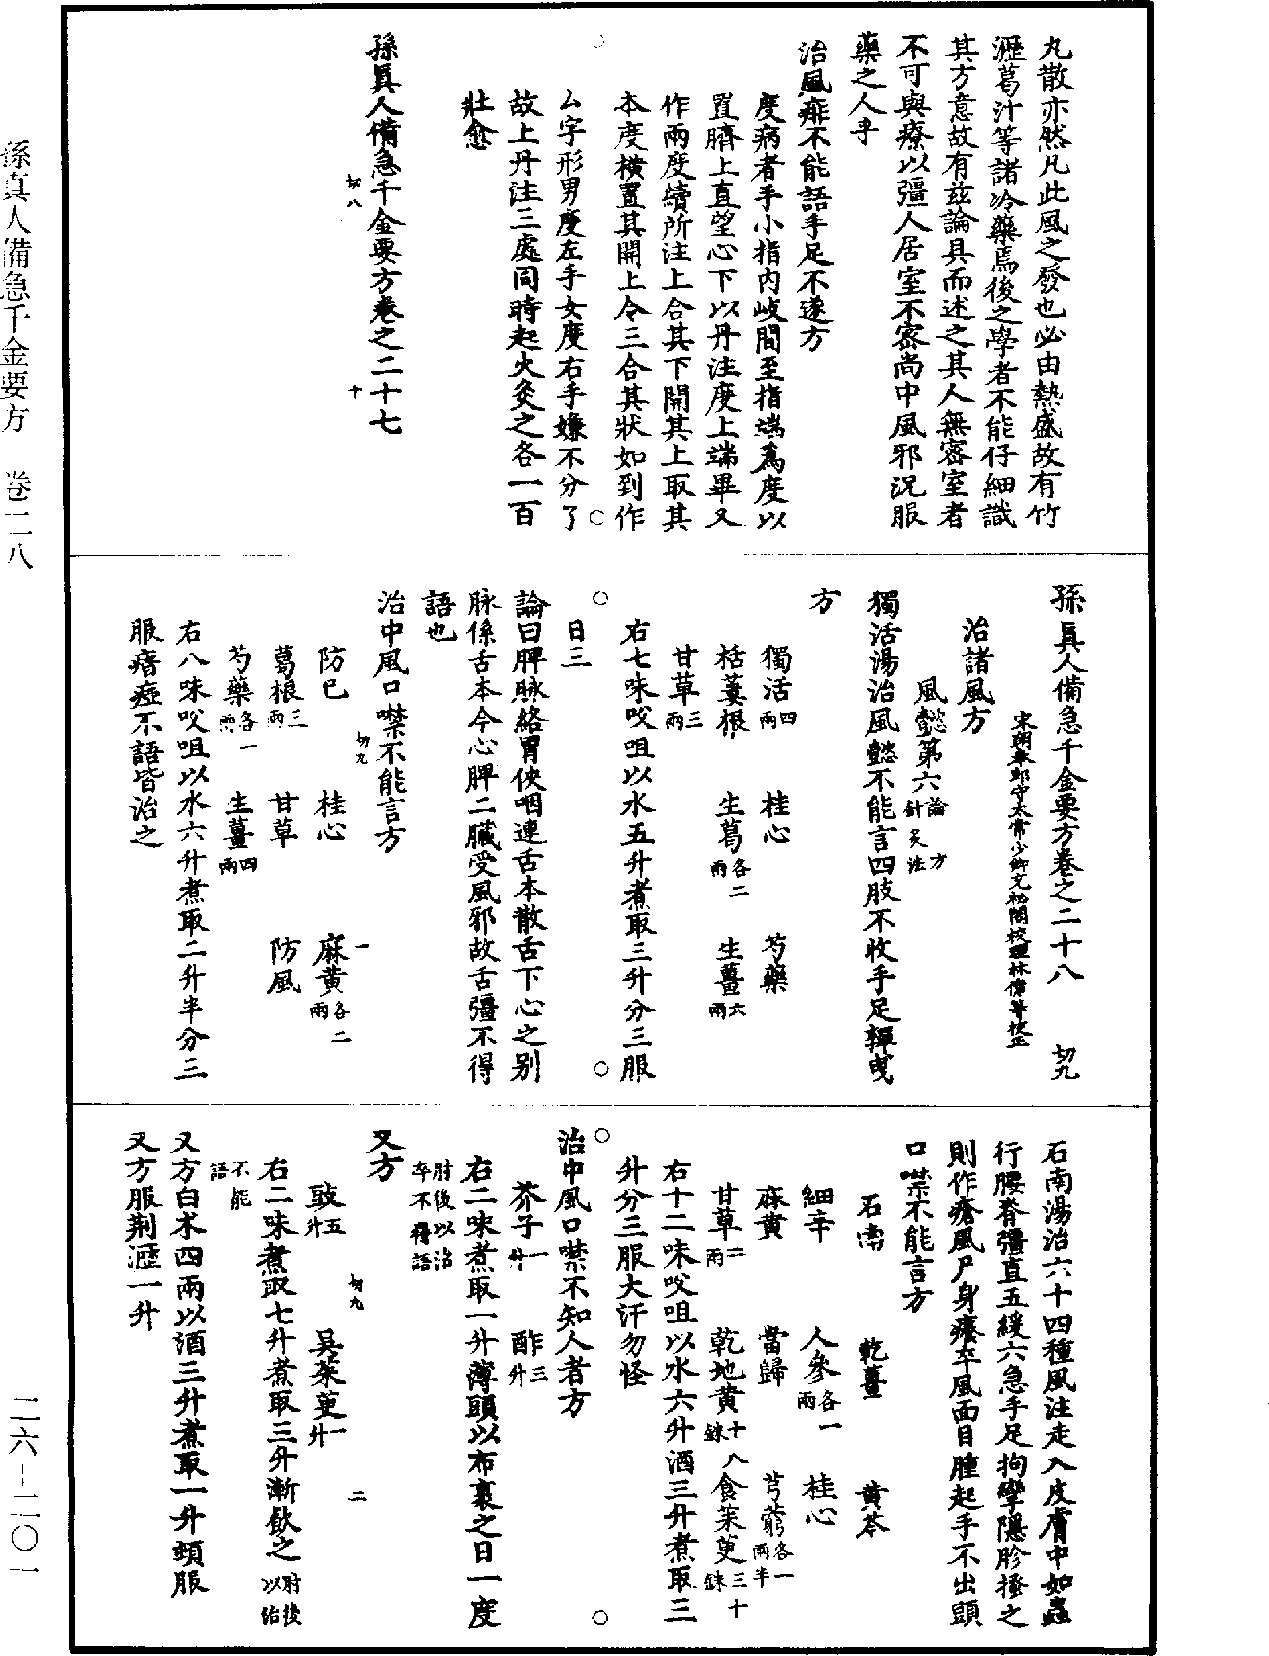 孫真人備急千金要方　卷二八
二六-二〇一
丸散亦然凡此風之發也必由熱盛故有竹
瀝葛汁等諸冷藥焉後之學者不能仔細識
其方意故有兹論具而述之其人無密室者
不可與療以彊人居室不密尚中風邪況服
藥之人乎
治風痱不能語手足不遂方
度病者手小指内岐間至指端為度以
置臍上直望心下以丹注度上端畢又
作兩度續所注上合其下開其上取其
本度橫置其開上令三合其狀如到作
厶字形男度左手女度右手嫌不分了
故上丹注三處同時起火灸之各一百
壯愈
孫真人備急千金要方卷之二十七
切八　十
孫真人備急千金要方卷之二十八　切九
宋朝奉郎守太常少卿充祕閣校理林億等校正
治諸風方
風懿第六論　方　針灸法
獨活湯治風懿不能言四肢不收手足嚲曳
方
獨活四兩　桂心　芍藥
栝蔞根　生葛各二兩　生薑六兩
甘草三兩
右七味㕮咀以水五升煮取三升分三服
日三
論曰脾脉絡胃俠咽連舌本散舌下心之别
脉係舌本今心脾二臟受風邪故舌彊不得
語也
治中風口噤不能言方
切九　一
防巳　桂心　麻黄各二兩
葛根三兩　甘草　防風
芍藥各一兩　生薑四兩
右八味㕮咀以水六升煮取二升半分三
服瘖瘂不語皆治之
石南湯治六十四種風注走入皮膚中如蟲
行腰脊彊直五緩六急手足拘攣隱胗搔之
則作瘡風尸身癢卒風面目腫起手不出頭
口噤不能言方
石南　乾薑　黄芩
細辛　人參各一兩　桂心
麻黄　當歸　芎藭各一兩半
甘草二兩　乾地黄十八銖　食茱萸三十銖
右十二味㕮咀以水六升酒三升煮取三
升分三服大汗勿怪
治中風口噤不知人者方
芥子一升　酢三升
右二味煮取一升薄頭以布裹之日一度
肘後以治卒不得語
又方
切九　二
豉五升　吴茱萸一升
右二味煮取七升煮取三升漸飲之肘後以治
不能語
又方白术四兩以酒三升煮取一升頓服
又方服荆瀝一升